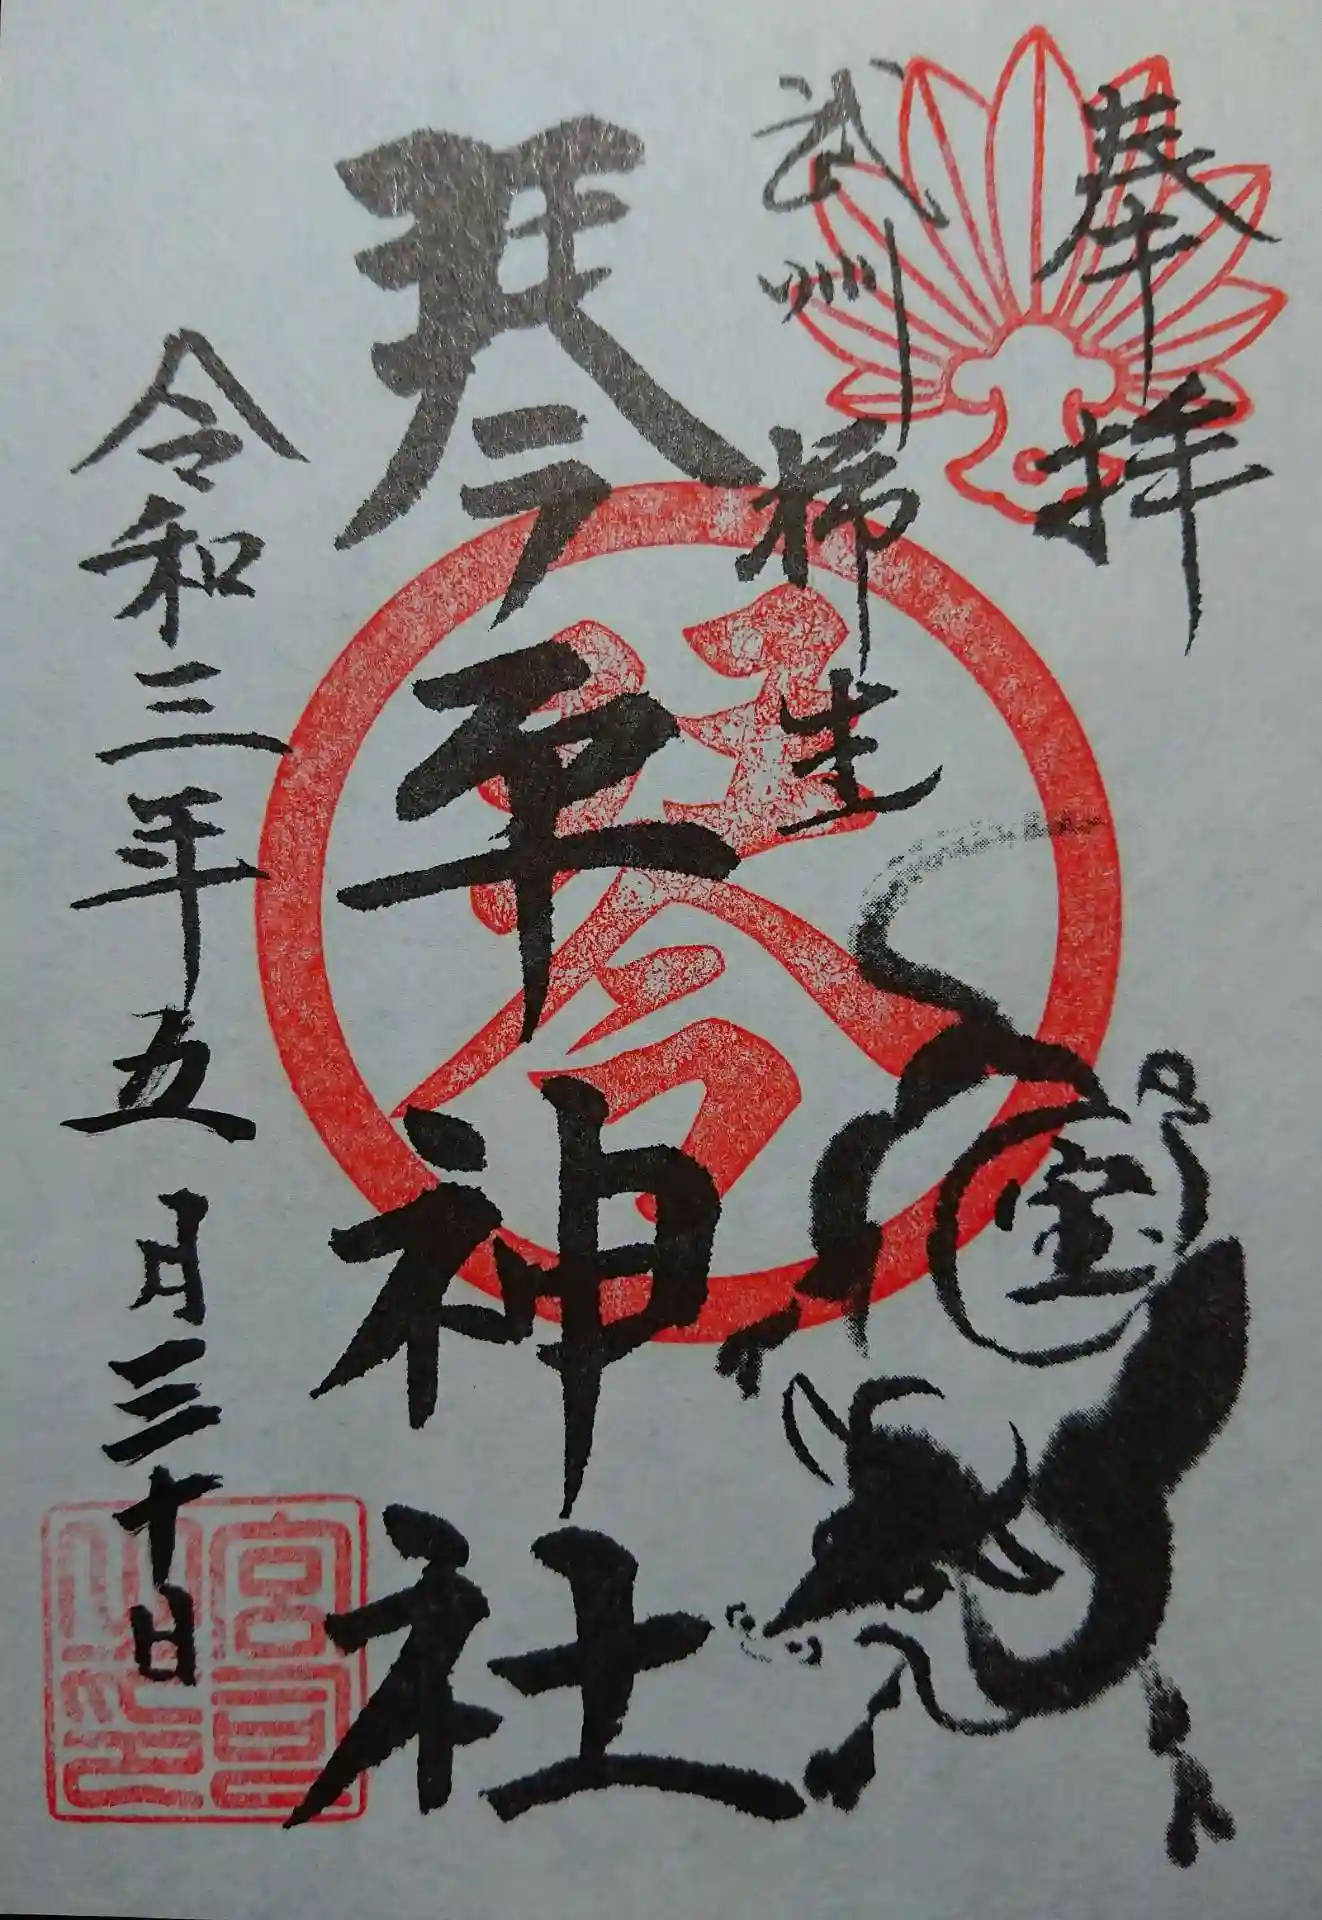 奉拝
武州柿生
琴平神社
令和三年五月三十日
琴
宝
宮司之印